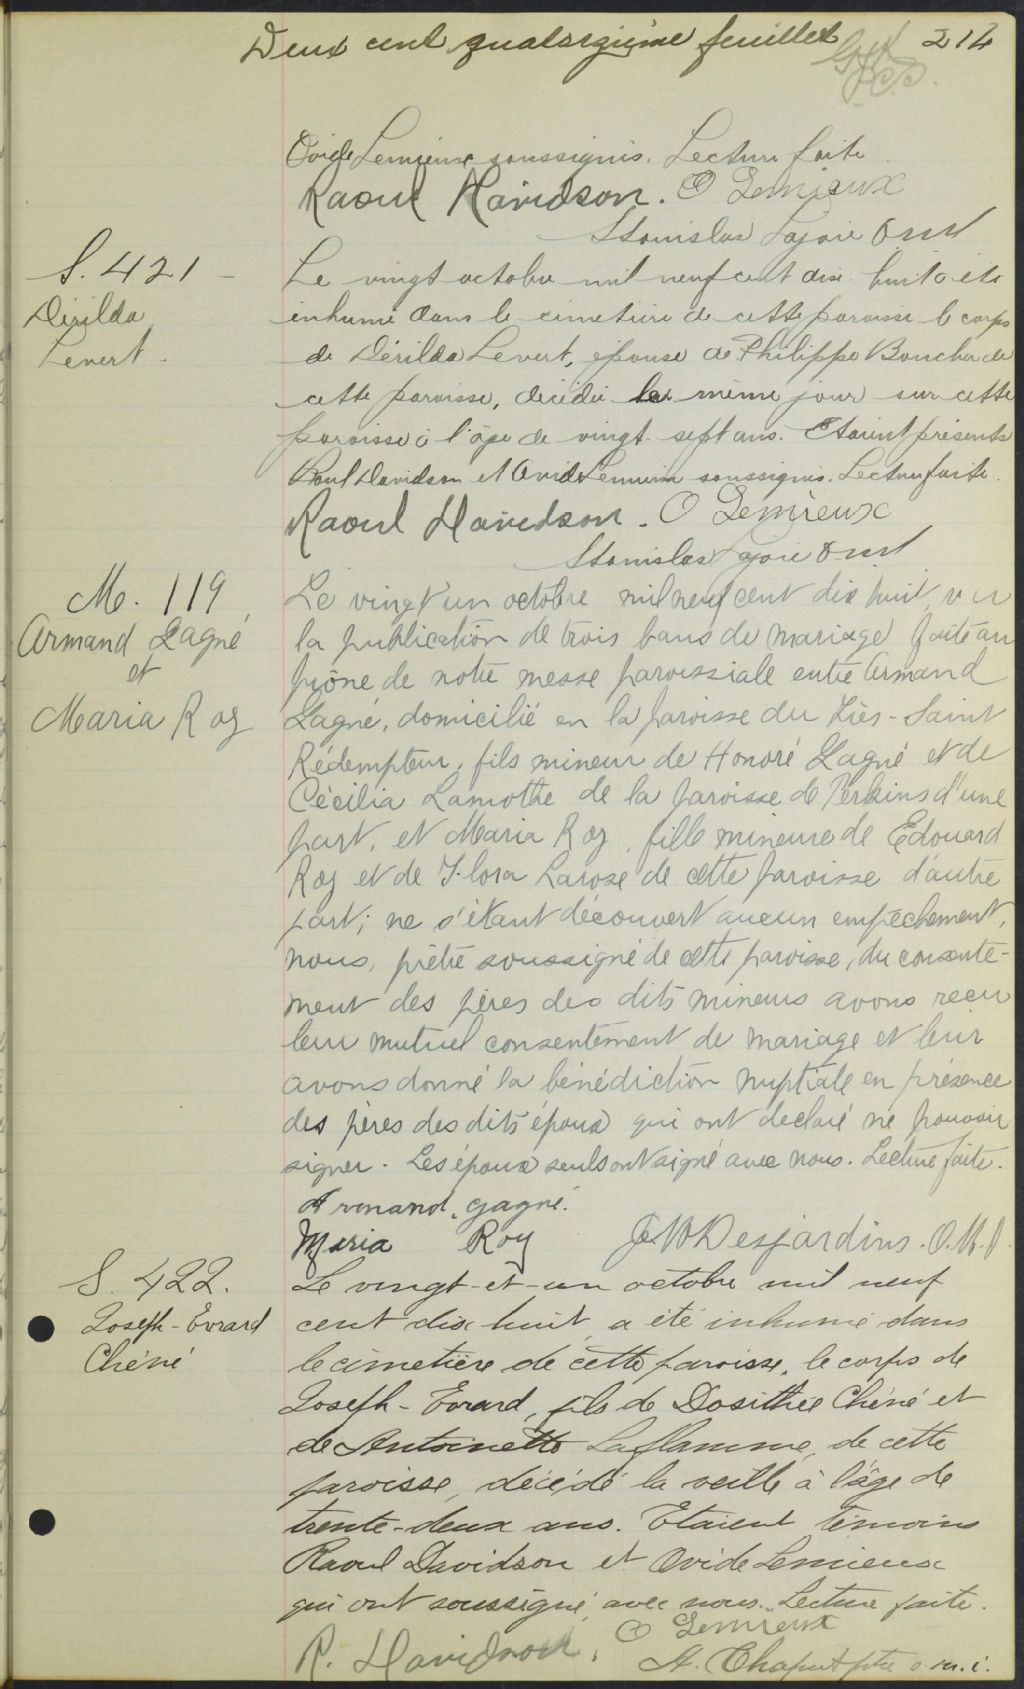 Deux cent quatorzième feuillet 214
Ovide Lemieux soussignés. Lecture faite
Raoul Davidson. O Lemieux
Stanislas Lajoie omi
S. 421 -
Dérilda
Levert.
Le vingt octobre mil neuf cent dix huit a été
inhumé dans le cimetière de cette paroisse le corps
de Dérilda Levert, épouse de Philippe Boucher de
cette paroisse, décédée le même jour sur cette
paroisse à l'âge de vingt-sept ans. Etaient présents
Raoul Davidson et Ovide Lemieux soussignés. Lecture faite.
Raoul Davidson. O Lemieux
Stanislas Lajoie omi
M. 119
Armand Gagné
et
Maria Roy
Le vingt un octobre mil neuf cent dix huit, vu
la publication de trois bans de mariage faite au
prône de notre messe paroissiale entre Armand
Gagné, domicilié en la paroisse du Très-Saint
Rédempteur, fils mineur de Honoré Gagné et de
Cécilia Lamothe de la paroisse de Perkins d'une
part, et Maria Roy, fille mineure de Edouard
Roy et de Flora Larose de cette paroisse d'autre
part; ne s'étant découvert aucun empêchement,
nous, prêtre soussigné de cette paroisse, du consente-
ment des pères des dits mineurs avons reçu
leur mutuel consentement de mariage et leur
avons donné la bénédiction nuptiale en présence
des pères des dits époux qui ont déclaré ne pouvoir
signer. Les époux seuls ont signé avec nous. Lecture faite.
Armand. gagné.
Maria Roy Desjardins. O.M.I
S. 422.
Joseph-Evrard
Chéné
Le vingt-et-un octobre mil neuf
cent dix huit, a été inhumé dans
le cimetière de cette paroisse, le corps de
Joseph-Evrard, fils de Dosithée Chéné et
de Antoinette Laflamme, de cette
paroisse, décédé la veille à l'âge de
trente-deux ans. Etaient témoins
Raoul Davidson et Ovide Lemieux
qui ont soussigné avec nous. Lecture faite.
R. Davidson. O Lemieux
A. Chaput ptre o.m.i.